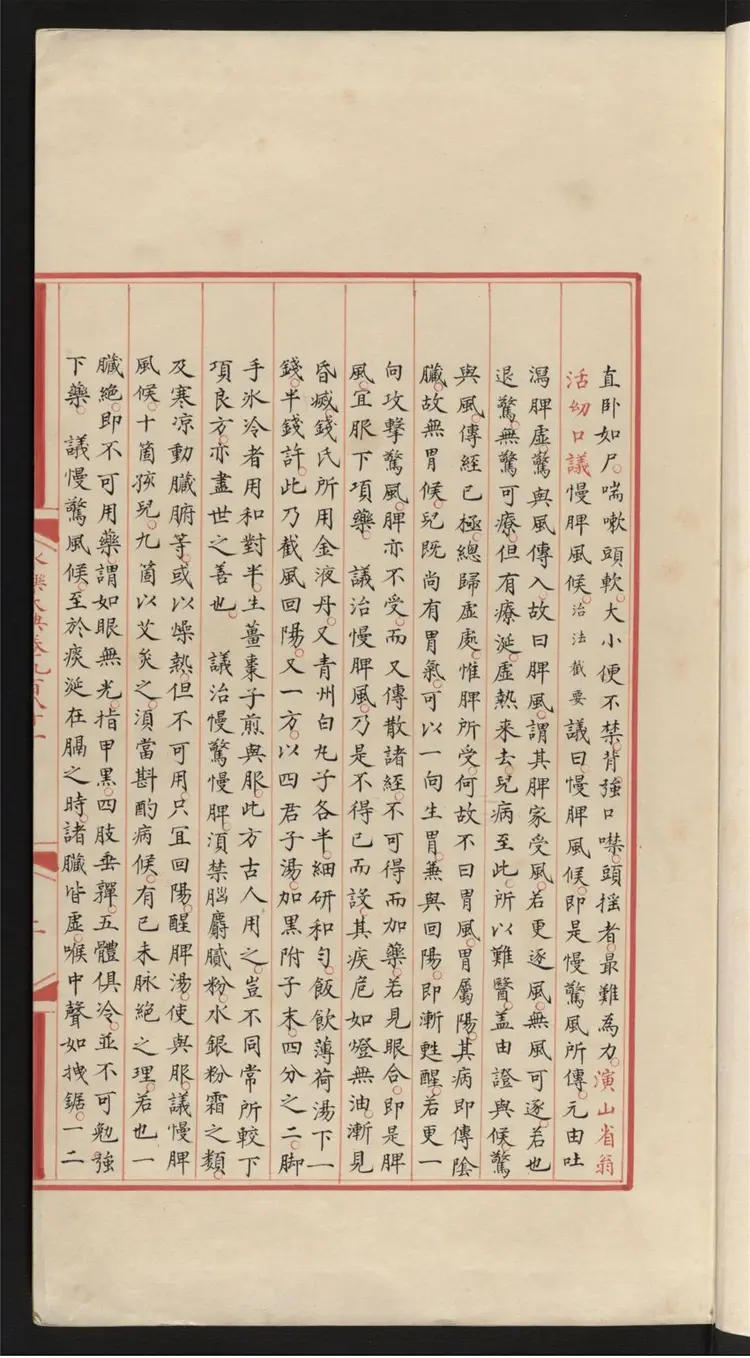 直卧如尸喘嗽頭軟大小便不禁背強口噤頭揺者最難為力演山省翁
活幼口議慢脾風候治法截要議曰慢脾風候即是慢驚風所傳元由吐
瀉脾虛驚與風傳入故曰脾風謂其脾家受風若更逐風無風可逐若也
退驚無驚可療但有療涎虛熱來去兒病至此所以難醫蓋由證與候驚
與風傳經已極總歸虛處惟脾所受何故不曰胃風胃屬陽其病即傳陰
臟故無胃候兒既尚有胃氣可以一向生胃兼與回陽即漸甦醒若更一
向攻擊驚風脾亦不受而又傳散諸經不可得而加藥若見眼合即是脾
風宜服下項藥 議治慢脾風乃是不得已而設其疾危如燈無油漸見
昏滅錢氏所用金液丹又青州白丸子各半細研和勻飯飲薄荷湯下一
錢半錢許此乃截風回陽又一方以四君子湯加黑附子末四分之二脚
手氷冷者用和對半生薑棗子煎與服此方古人用之豈不同常所較下
項良方亦盡世之善也 議治慢驚慢脾湏禁腦麝膩粉水銀粉霜之類
及寒凉動臟腑等或以燥熱但不可用只宜回陽醒脾湯使與服議慢脾
風候十箇孩兒九箇以艾灸之湏當斟酌病候有已未脉絶之理若也一
臟絶即不可用藥謂如眼無光指甲黑四肢垂嚲五體俱冷並不可勉強
下藥 議慢驚風候至於痰涎在膈之時諸臟皆虛喉中聲如拽鋸一二
永樂大典卷九百八十一